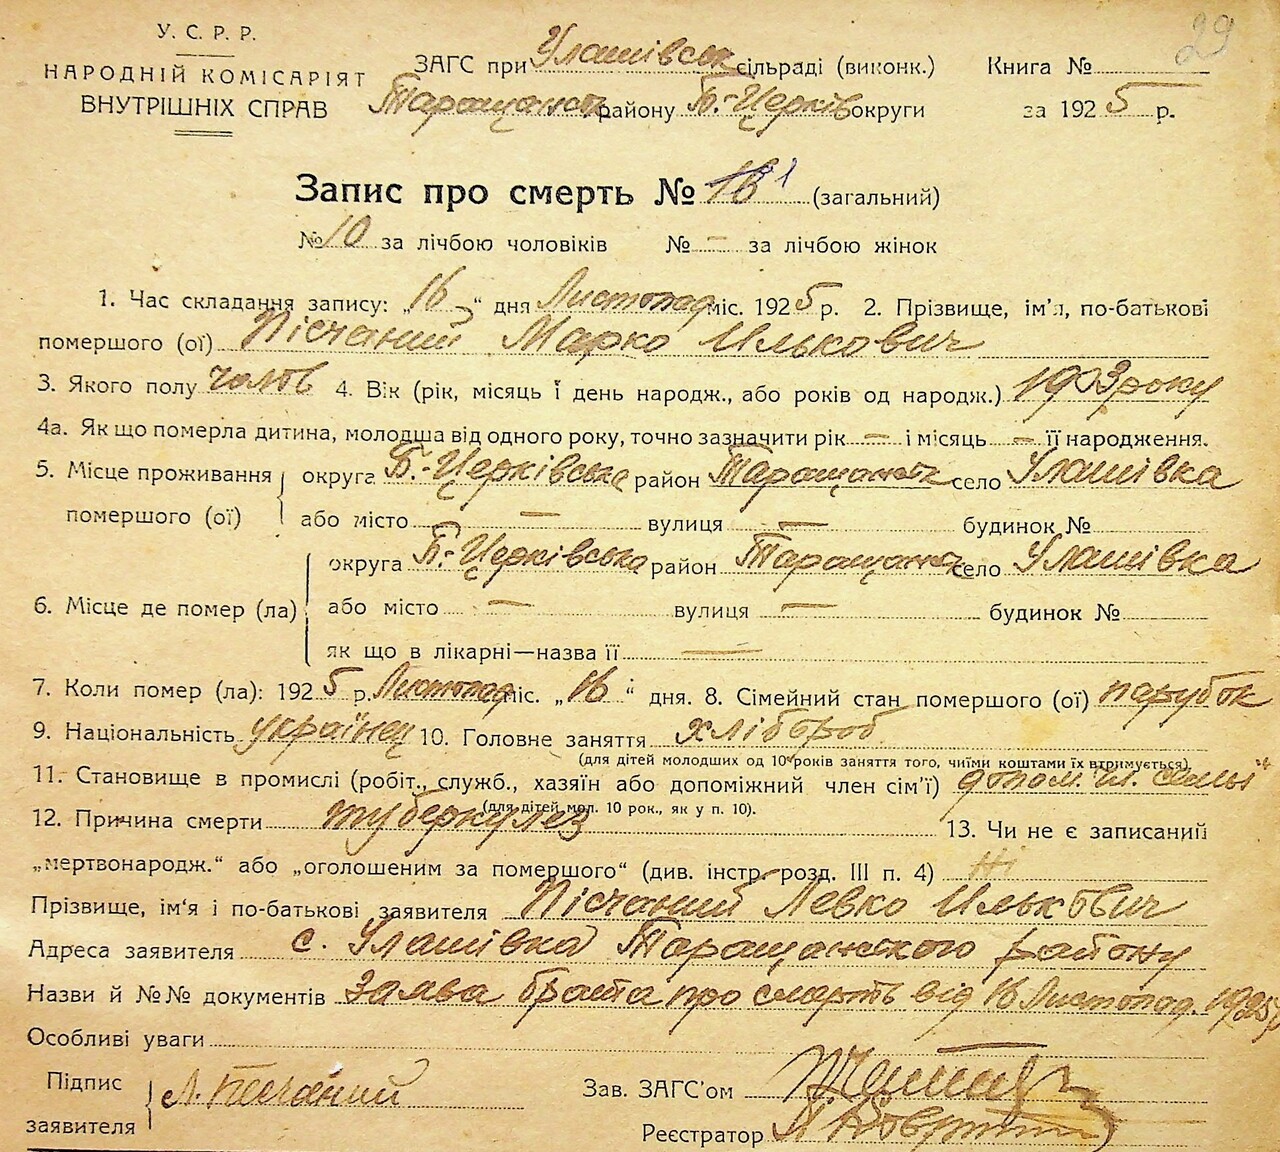 29
У. С. Р. Р.
НАРОДНІЙ КОМІСАРІЯТ
ВНУТРІШНІХ СПРАВ
ЗАГС при Улашівськ сільраді (виконк.)
Таращанськ району Б.-Церків округи
Книга №
за 1925 р.
Запис про смерть № 1 (загальний)
№ 10 за лічбою чоловіків № — за лічбою жінок
1. Час складання запису: „16“ дня Листопад міс. 1925 р. 2. Прізвище, ім'я, по-батькові
помершого (ої) Пісчаний Марко Илькович
3. Якого полу чолов 4. Вік (рік, місяць ї день народж., або років од народж.) 1903 року
4а. Як що померла дитина, молодша від одного року, точно зазначити рік — і місяць — її народження.
5. Місце проживання помершого (ої) округа Б.-Церківська район Таращанськ село Улашівка
або місто — вулиця — будинок №
6. Місце де помер (ла) округа Б.-Церківська район Таращанськ село Улашівка
або місто — вулиця — будинок №
як що в лікарні—назва її —
7. Коли помер (ла): 1925 р. Листопад міс. „16“ дня. 8. Сімейний стан помершого (ої) парубок
9. Національність українец 10. Головне заняття хлібороб
(для дітей молодших од 10 років заняття того, чиїми коштами їх втримується).
11. Становище в промислі (робіт., служб., хазяїн або допоміжний член сім'ї) допом. чл. семьї
(для дітей мол. 10 рок., як у п. 10).
12. Причина смерти туберкулез 13. Чи не є записаний
„мертвонародж.“ або „оголошеним за помершого“ (див. інстр. розд. III п. 4) Ні
Прізвище, ім'я і по-батькові заявителя Пісчаний Левко Илькович
Адреса заявителя с. Улашівка Таращанского району
Назви й №№ документів Заява брата про смерть від 16 Листопад. 1925 р
Особливі уваги
Підпис заявителя Л. Песчаний
Зав. ЗАГС'ом
Реєстратор